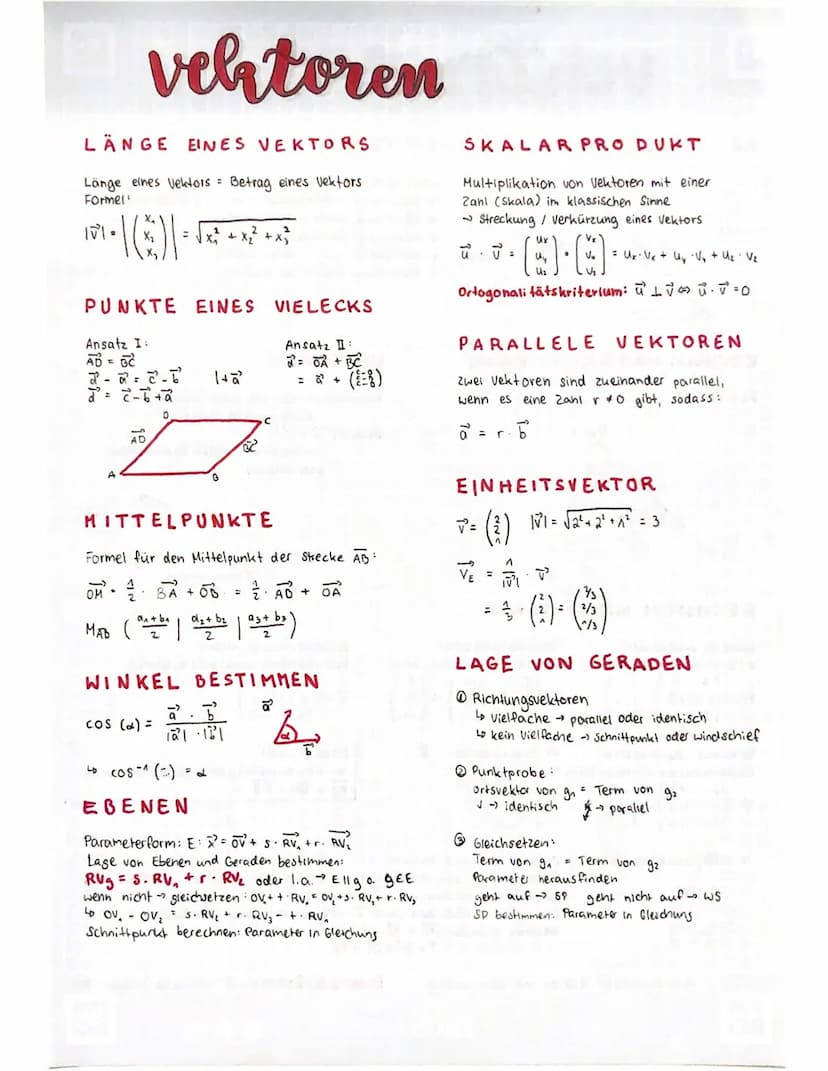 Vektoren
LÄNGE EINES VEKTORS
Länge eines Vektors = Betrag eines Vektors
Formel:
|v⃗| = |(x₁ x₂ x₃)| = √x₁² + x₂² + x₃²
PUNKTE EINES VIELECKS
Ansatz I:
AD⃗ = BC⃗
d⃗ - a⃗ = c⃗ - b⃗ |+a⃗
d⃗ = c⃗ - b⃗ + a⃗
Ansatz II:
d⃗ = OA⃗ + BC⃗
= a⃗ +
D
C
AD⃗
BC⃗
A
B
MITTELPUNKTE
Formel für den Mittelpunkt der Strecke AB:
OM⃗ = 1/2 · BA⃗ + OB⃗ = 1/2 · AB⃗ + OA⃗
MAB (a₁+b₁/2 | a₂+b₂/2 | a₃+b₃/2)
WINKEL BESTIMMEN
cos (α) = a⃗ · b⃗ / |a⃗| · |b⃗|
a⃗
α
b⃗
↳ cos⁻¹ (...) = α
EBENEN
Parameterform: E: x⃗ = OV⃗ + s · RV₁⃗ + r · RV₂⃗
Lage von Ebenen und Geraden bestimmen:
RVg = s · RV₁ + r · RV₂ oder l.a. → E || g o. g∈E
wenn nicht → gleichsetzen: OV₁ + t · RV₁ = OV₂ + s · RV₂ + r · RV₃
↳ OV₁ - OV₂ = s · RV₂ + r · RV₃ - t · RV₁
Schnittpunkt berechnen: Parameter in Gleichung
SKALARPRODUKT
Multiplikation von Vektoren mit einer
Zahl (Skala) im klassischen Sinne
→ Streckung / Verkürzung eines Vektors
u⃗ · v⃗ = [ux uy uz] · [vx vy vz] = ux · vx + uy · vy + uz · vz
Ortogonalitätskriterium: u⃗ ⊥ v⃗ ⇔ u⃗ · v⃗ = 0
PARALLELE VEKTOREN
zwei Vektoren sind zueinander parallel,
wenn es eine Zahl r ≠ 0 gibt, sodass:
a⃗ = r · b⃗
EINHEITSVEKTOR
v⃗ = (2 2 1) |v⃗| = √2² + 2² + 1² = 3
VE⃗ = 1/|v⃗| · v⃗
= 1/3 · (2 2 1) = (2/3 2/3 1/3)
LAGE VON GERADEN
① Richtungsvektoren
↳ Vielfache → parallel oder identisch
↳ kein Vielfache → Schnittpunkt oder windschief
② Punktprobe:
Ortsvektor von g₁ = Term von g₂
✓ → identisch ↯ → parallel
③ Gleichsetzen:
Term von g₁ = Term von g₂
Parameter herausfinden
geht auf → SP geht nicht auf → WS
SP bestimmen: Parameter in Gleichung